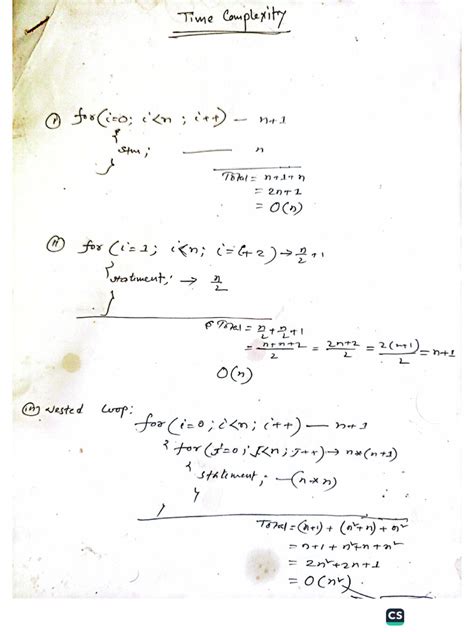 Time Complexity
(i) for(i=0; i<n; i++) — n+1
{
stm; — n
}
Total = n+1+n
= 2n+1
= O(n)
(ii) for (i=1; i<n; i=i+2) → n/2 +1
{
statement; → n/2
}
Total = n/2 + n/2 + 1
= n+n+2/2 = 2n+2/2 = 2(n+1)/2 = n+1
O(n)
(iii) Nested Loop:
for(i=0; i<n; i++) — n+1
{ for(J=0; J<n; J++) → n*(n+1)
{
statement; — (n*n)
}
}
Total = (n+1) + (n²+n) + n²
= n+1+n²+n+n²
= 2n²+2n+1
= O(n²)
CS